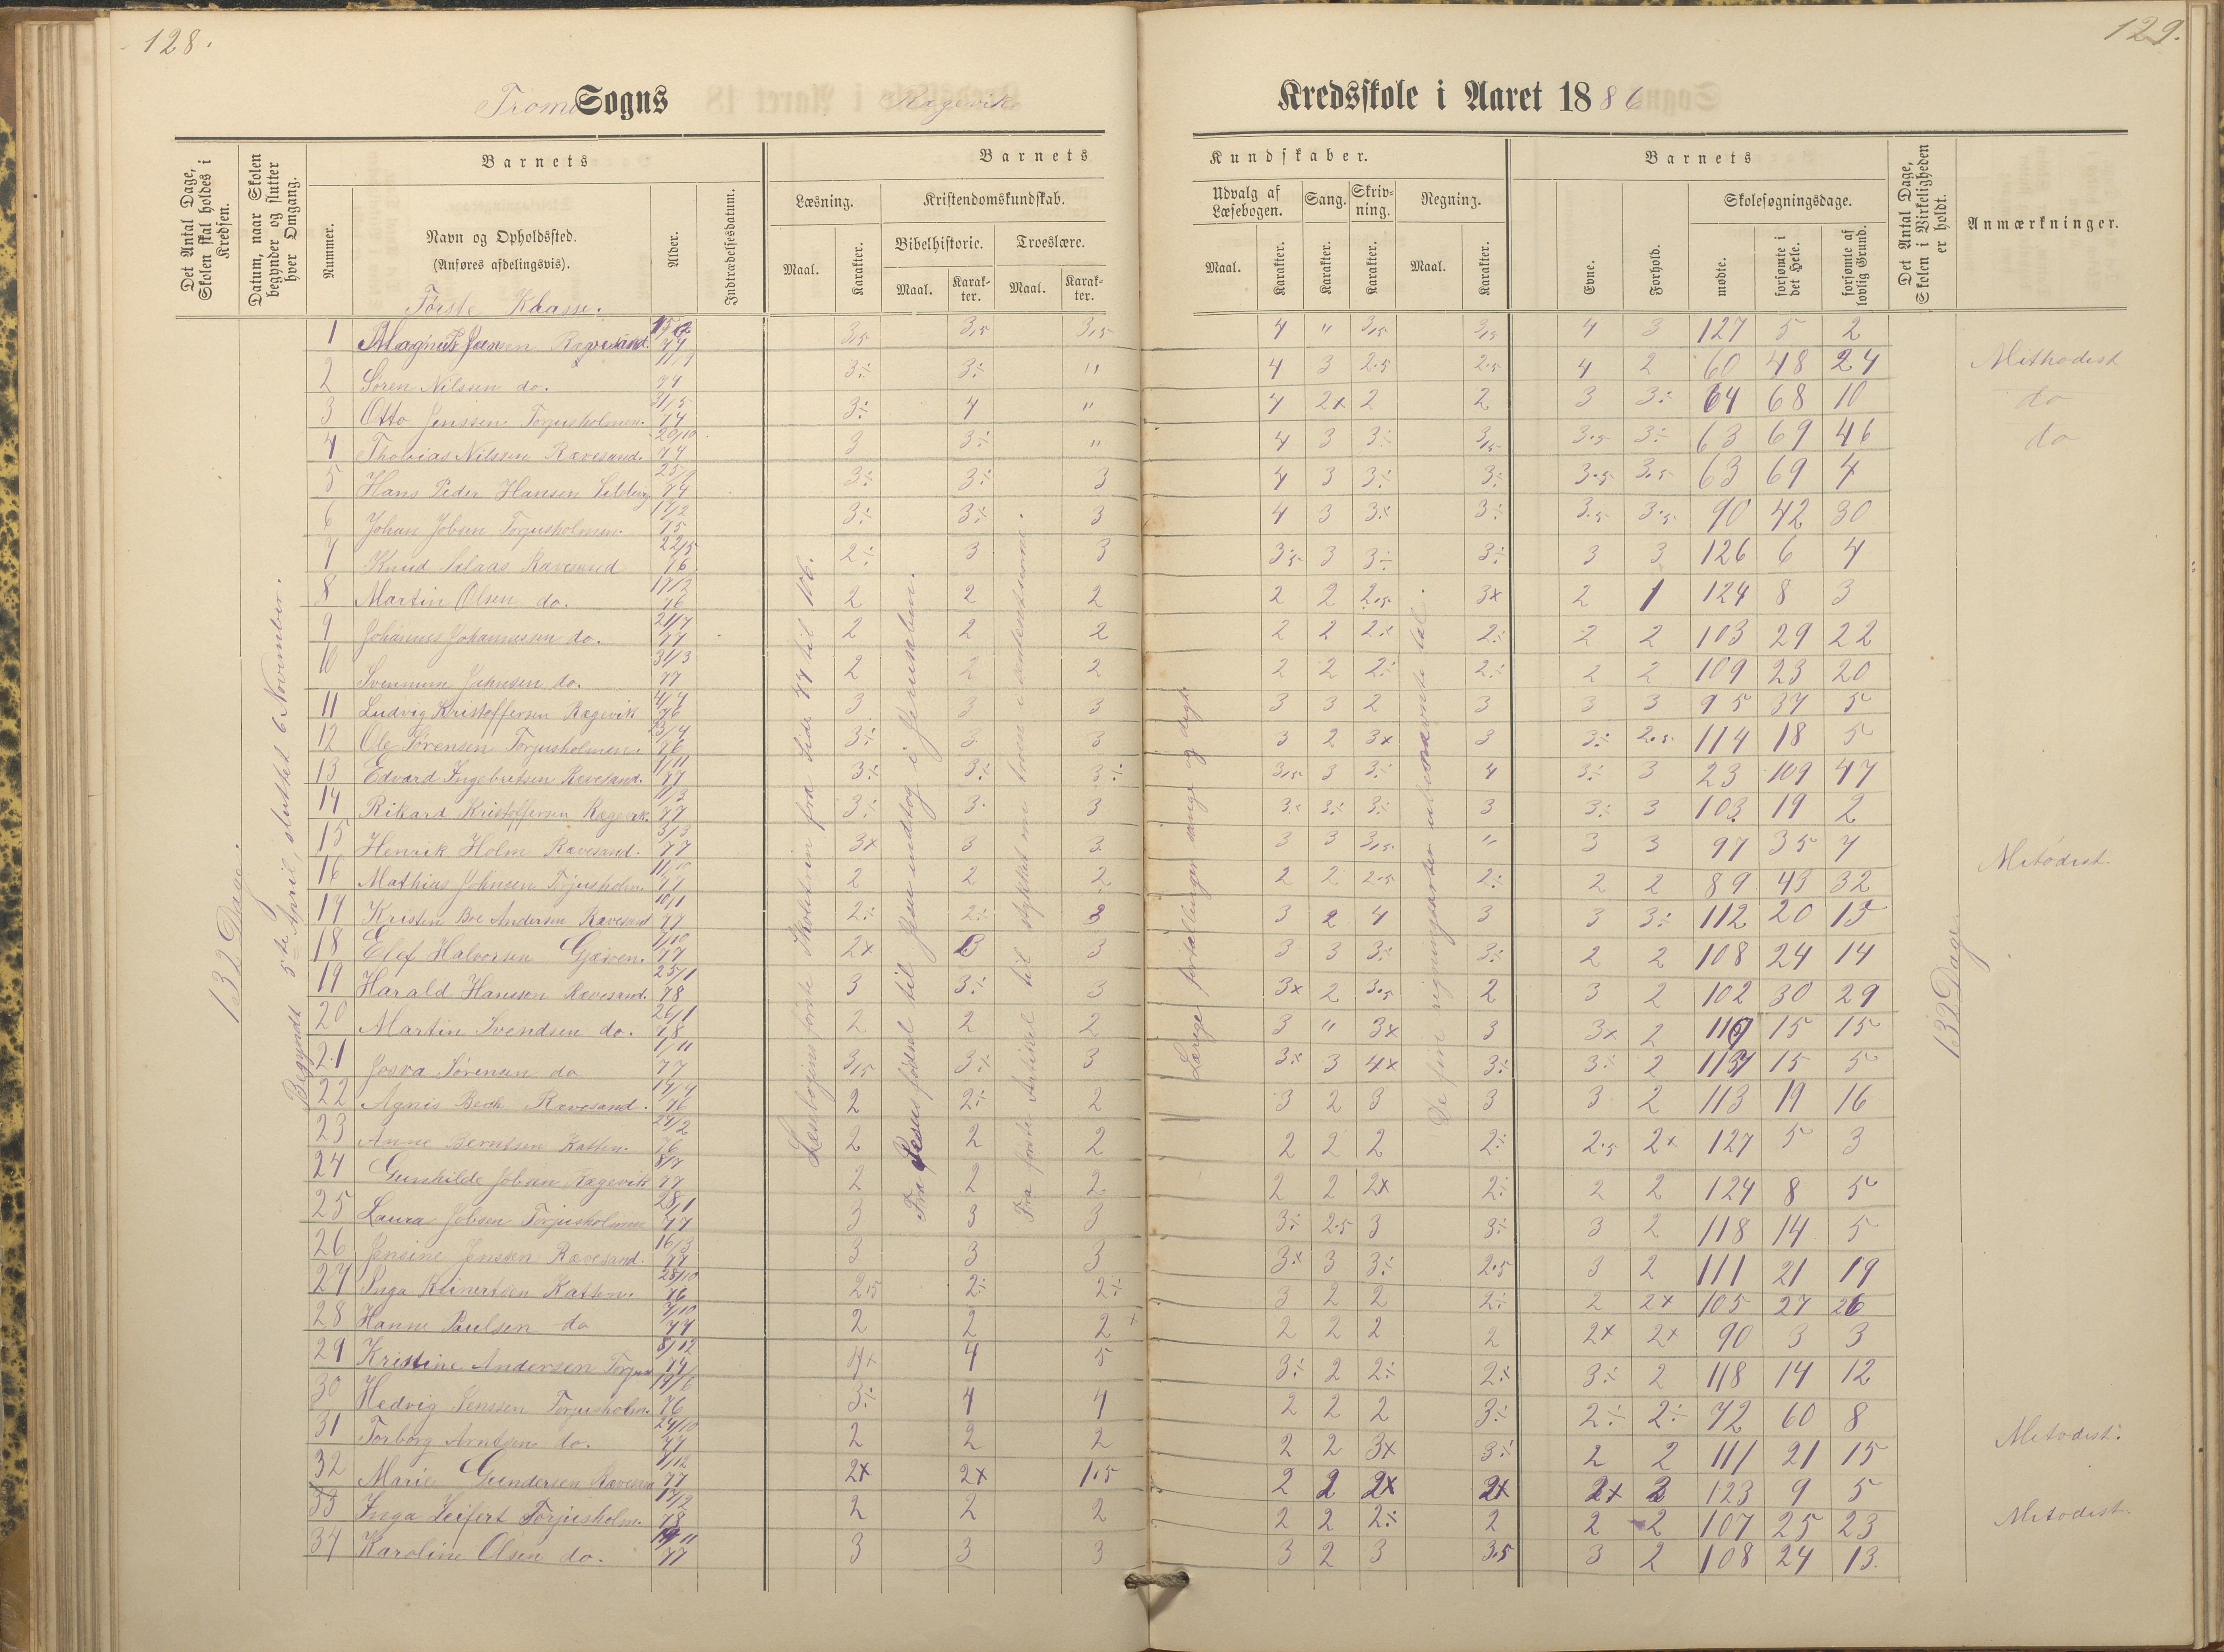 128.
129.
Tromø Sogns Rægevik Kredsskole i Aaret 1886
Det Antal Dage, Skolen skal holdes i Kredsen.
Datum, naar Skolen begynder og slutter hver Omgang.
Nummer.
Barnets
Navn og Opholdssted.
(Anføres afdelingsvis).
Alder.
Indtrædelsesdatum.
Barnets
Læsning.
Maal.
Karakter.
Kristendomskundskab.
Bibelhistorie.
Maal.
Karakter.
Troeslære.
Maal.
Karakter.
Kundskaber.
Udvalg af Læsebogen.
Maal.
Karakter.
Sang.
Karakter.
Skrivning.
Karakter.
Regning.
Maal.
Karakter.
Barnets
Evne.
Forhold.
Skolesøgningsdage.
mødte.
forsømte i det Hele.
forsømte af lovlig Grund.
Det Antal Dage, Skolen i Virkeligheden er holdt.
Anmærkninger.
Første Klasse.
132 Dage.
Begyndt 5te April, sluttet 6 November.
Læsebogens første Skoletrin fra Side 77 til 106.
Fra Jesu fødsel til Jesu indtog i Jerusalem.
Fra første Artikel til stykket om troen i andentsens.
Lærige fortællinger sange og digt.
De fire regningsarter i ubenævnte tal.
132 Dage
1 Magnus Jensen Rægevisand. 77 3,5 3,5 3,5 4 " 3,5 3,5 4 3 127 5 2
2 Søren Nilsen do. 11/1 74 3÷ 3÷ " 4 3 2.5 2.5 4 2 60 48 24 Methodist
3 Otto Jenssen Torjusholmen. 31/5 74 3÷ 4 " 4 2x 2 2 3 3÷ 64 68 10 do
4 Thobias Nilssen Rævesand. 20/10 74 3 3÷ " 4 3 3÷ 3,5 3.5 3÷ 63 69 46 do
5 Hans Peder Hansen 74 3÷ 3÷ 3 4 3 3÷ 3÷ 3.5 3.5 63 69 4
6 Johan Jobsen Torjusholmen. 17/2 75 3÷ 3÷ 3 4 3 3÷ 3÷ 3.5 3.5 90 42 30
7 Knud Salaas Rævesand 22/5 76 2÷ 3 3 3.5 3 3÷ 3÷ 3 3 126 6 4
8 Martin Olsen do. 17/3 76 2 2 2 2 2 2.5 3x 2 1 124 8 3
9 Johannes Johannesen do. 21/7 77 2 2 2 2 2 2÷ 2÷ 2 2 103 29 22
10 Svennum Jahnsen do. 31/3 77 2 2 2 2 2 2÷ 2÷ 2 2 109 23 20
11 Ludvig Kristoffersen Rægevik 4/4 76 3 3 3 3 3 2 3 3 3 95 37 5
12 Ole Sørensen Torjusholmen. 23/4 76 3÷ 3 3 3 2 3x 3 3÷ 2.5 114 18 5
13 Edvard Ingebretsen Rævesand. 77 3÷ 3÷ 3÷ 3,5 3 3÷ 4 3÷ 3 23 109 47
14 Rikard Kristoffersen Rægevik. 11/3 77 3÷ 3. 3 3÷ 3÷ 3÷ 3 3÷ 3 103 19 2
15 Henrik Holm Rævesand. 3/3 77 3x 3 3 3 3 3,5 " 3 3 97 35 7 Metodist.
16 Mathias Johnsen Torjusholm. 77 2 2 2 2 2 2.5 2÷ 2 2 89 43 32
17 Kristen Boe Andersen Rævesand 10/1 77 2÷ 2÷ 3 3 2 4 3 3 3÷ 112 20 15
18 Elef Halvorsen Gjæven. 1/10 77 2x 3 3 3 3 3÷ 3÷ 2 2 108 24 14
19 Harald Hansen Rævesand. 25/1 78 3 3÷ 3 3x 2 3.5 2 3 2 102 30 29
20 Martin Svendsen do. 26/1 78 2 2 2 3 " 3x 3 3x 2 117 15 15
21 Josva Sørensen do 1/11 77 3,5 3÷ 3 3÷ 3 4x 3÷ 3÷ 2 117 15 5
22 Agnes Bech Rævesand. 14/4 76 2 2÷ 2 3 2 3 3 3 2 113 19 16
23 Anne Berntsen Katten. 24/2 76 2 2 2 2 2 2 2÷ 2.5 2x 127 5 3
24 Gunhilde Jobsen Rægevik 8/7 77 2 2 2 2 2 2x 2÷ 2 2 124 8 5
25 Laura Jobsen Torjusholmen 28/1 77 3 3 3 3÷ 2.5 3 3÷ 3 2 118 14 5
26 Jensine Jenssen Rævesand. 16/3 77 3 3 3 3x 3 3÷ 2.5 3 2 111 21 19
27 Inga Reinertsen Katten. 28/10 76 2.5 2÷ 2÷ 3 2 2 2÷ 2 2x 105 27 26
28 Hanne Paulsen do 7/10 77 2 2 2x 2 2 2 2 2x 2x 90 3 3
29 Kristine Andersen Torjus 8/12 74 4x 4 5 3÷ 2 2÷ 2÷ 3÷ 2 118 14 12
30 Hedvig Jenssen Torjusholm. 19/6 76 3÷ 4 4 2 2 2 3÷ 2÷ 2÷ 72 60 8
31 Torborg Arntsen do. 24/10 77 2 2 2 2 2 3x 3÷ 2 2 111 21 15 Metodist.
32 Marie Gundersen Rævesand 1/12 77 2x 2x 1.5 2 2 2x 2x 2x 2 123 9 5
33 Inga Leifert Torjusholm. 17/2 78 2 2 2 2 2 2÷ 2 2 2 107 25 23 Metodist.
34 Karoline Olsen do. 77 3 3 3 3 2 3 3.5 3 2 108 24 13.